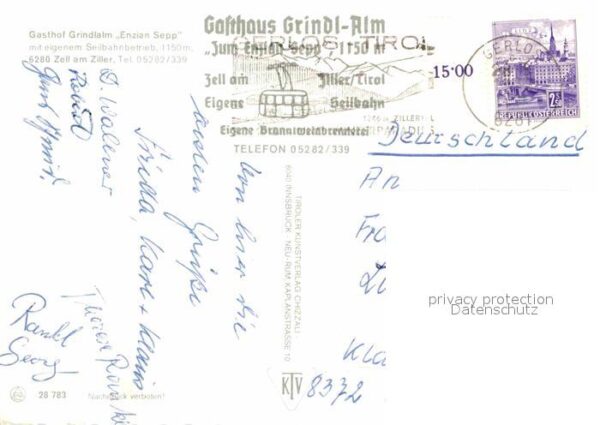 Gasthof Grindlalm „Enzian Sepp"
mit eigenem Seilbahnbetrieb, 1150m,
6280 Zell am Ziller, Tel. 05282/339
Gasthaus Grindl-Alm
„Zum Enzian Sepp", 1150 m
Zell am Ziller/Tirol
Eigene Seilbahn
Eigene Branntweinbrennerei
TELEFON 05282/339
GERLOS TIROL
-15·00
GERLOS
6281
2.50
REPUBLIK ÖSTERREICH
Deutschland
An
Kla
8372
Von hier die
besten Grüße
Frieda, Karl + Klaus
D. Wallner
Randl
Georg
TIROLER KUNSTVERLAG CHIZZALI
6040 INNSBRUCK - NEU-RUM KAPLANSTRASSE 10
KTV
28 783
Nachdruck verboten!
privacy protection
Datenschutz